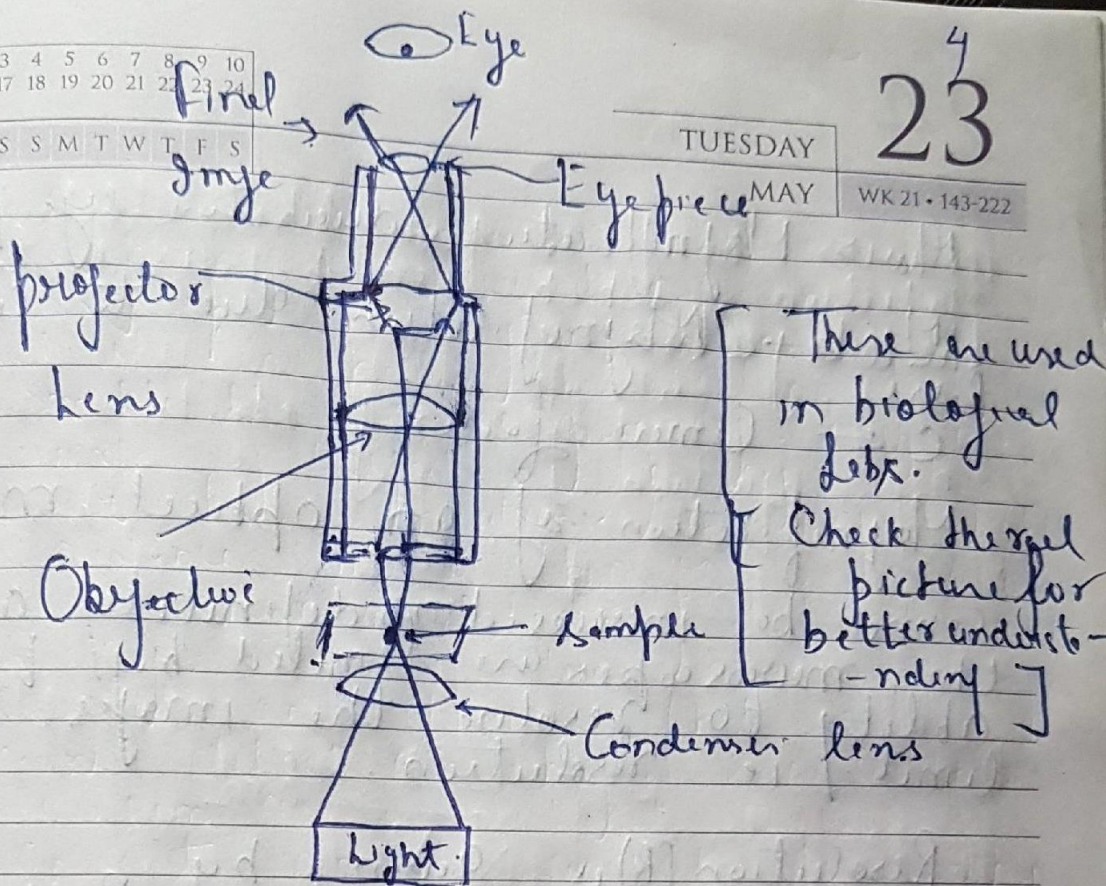 4
3 4 5 6 7 8 9 10
17 18 19 20 21 22 23 24
S S M T W T F S
23
TUESDAY
MAY
WK 21 • 143-222
Eye
Final
Imge
Eye piece
projector
Lens
Objective
sample
Condenser lens
Light
[ These are used
in biological
Labs.
Check the real
picture for
better understa-
-nding ]